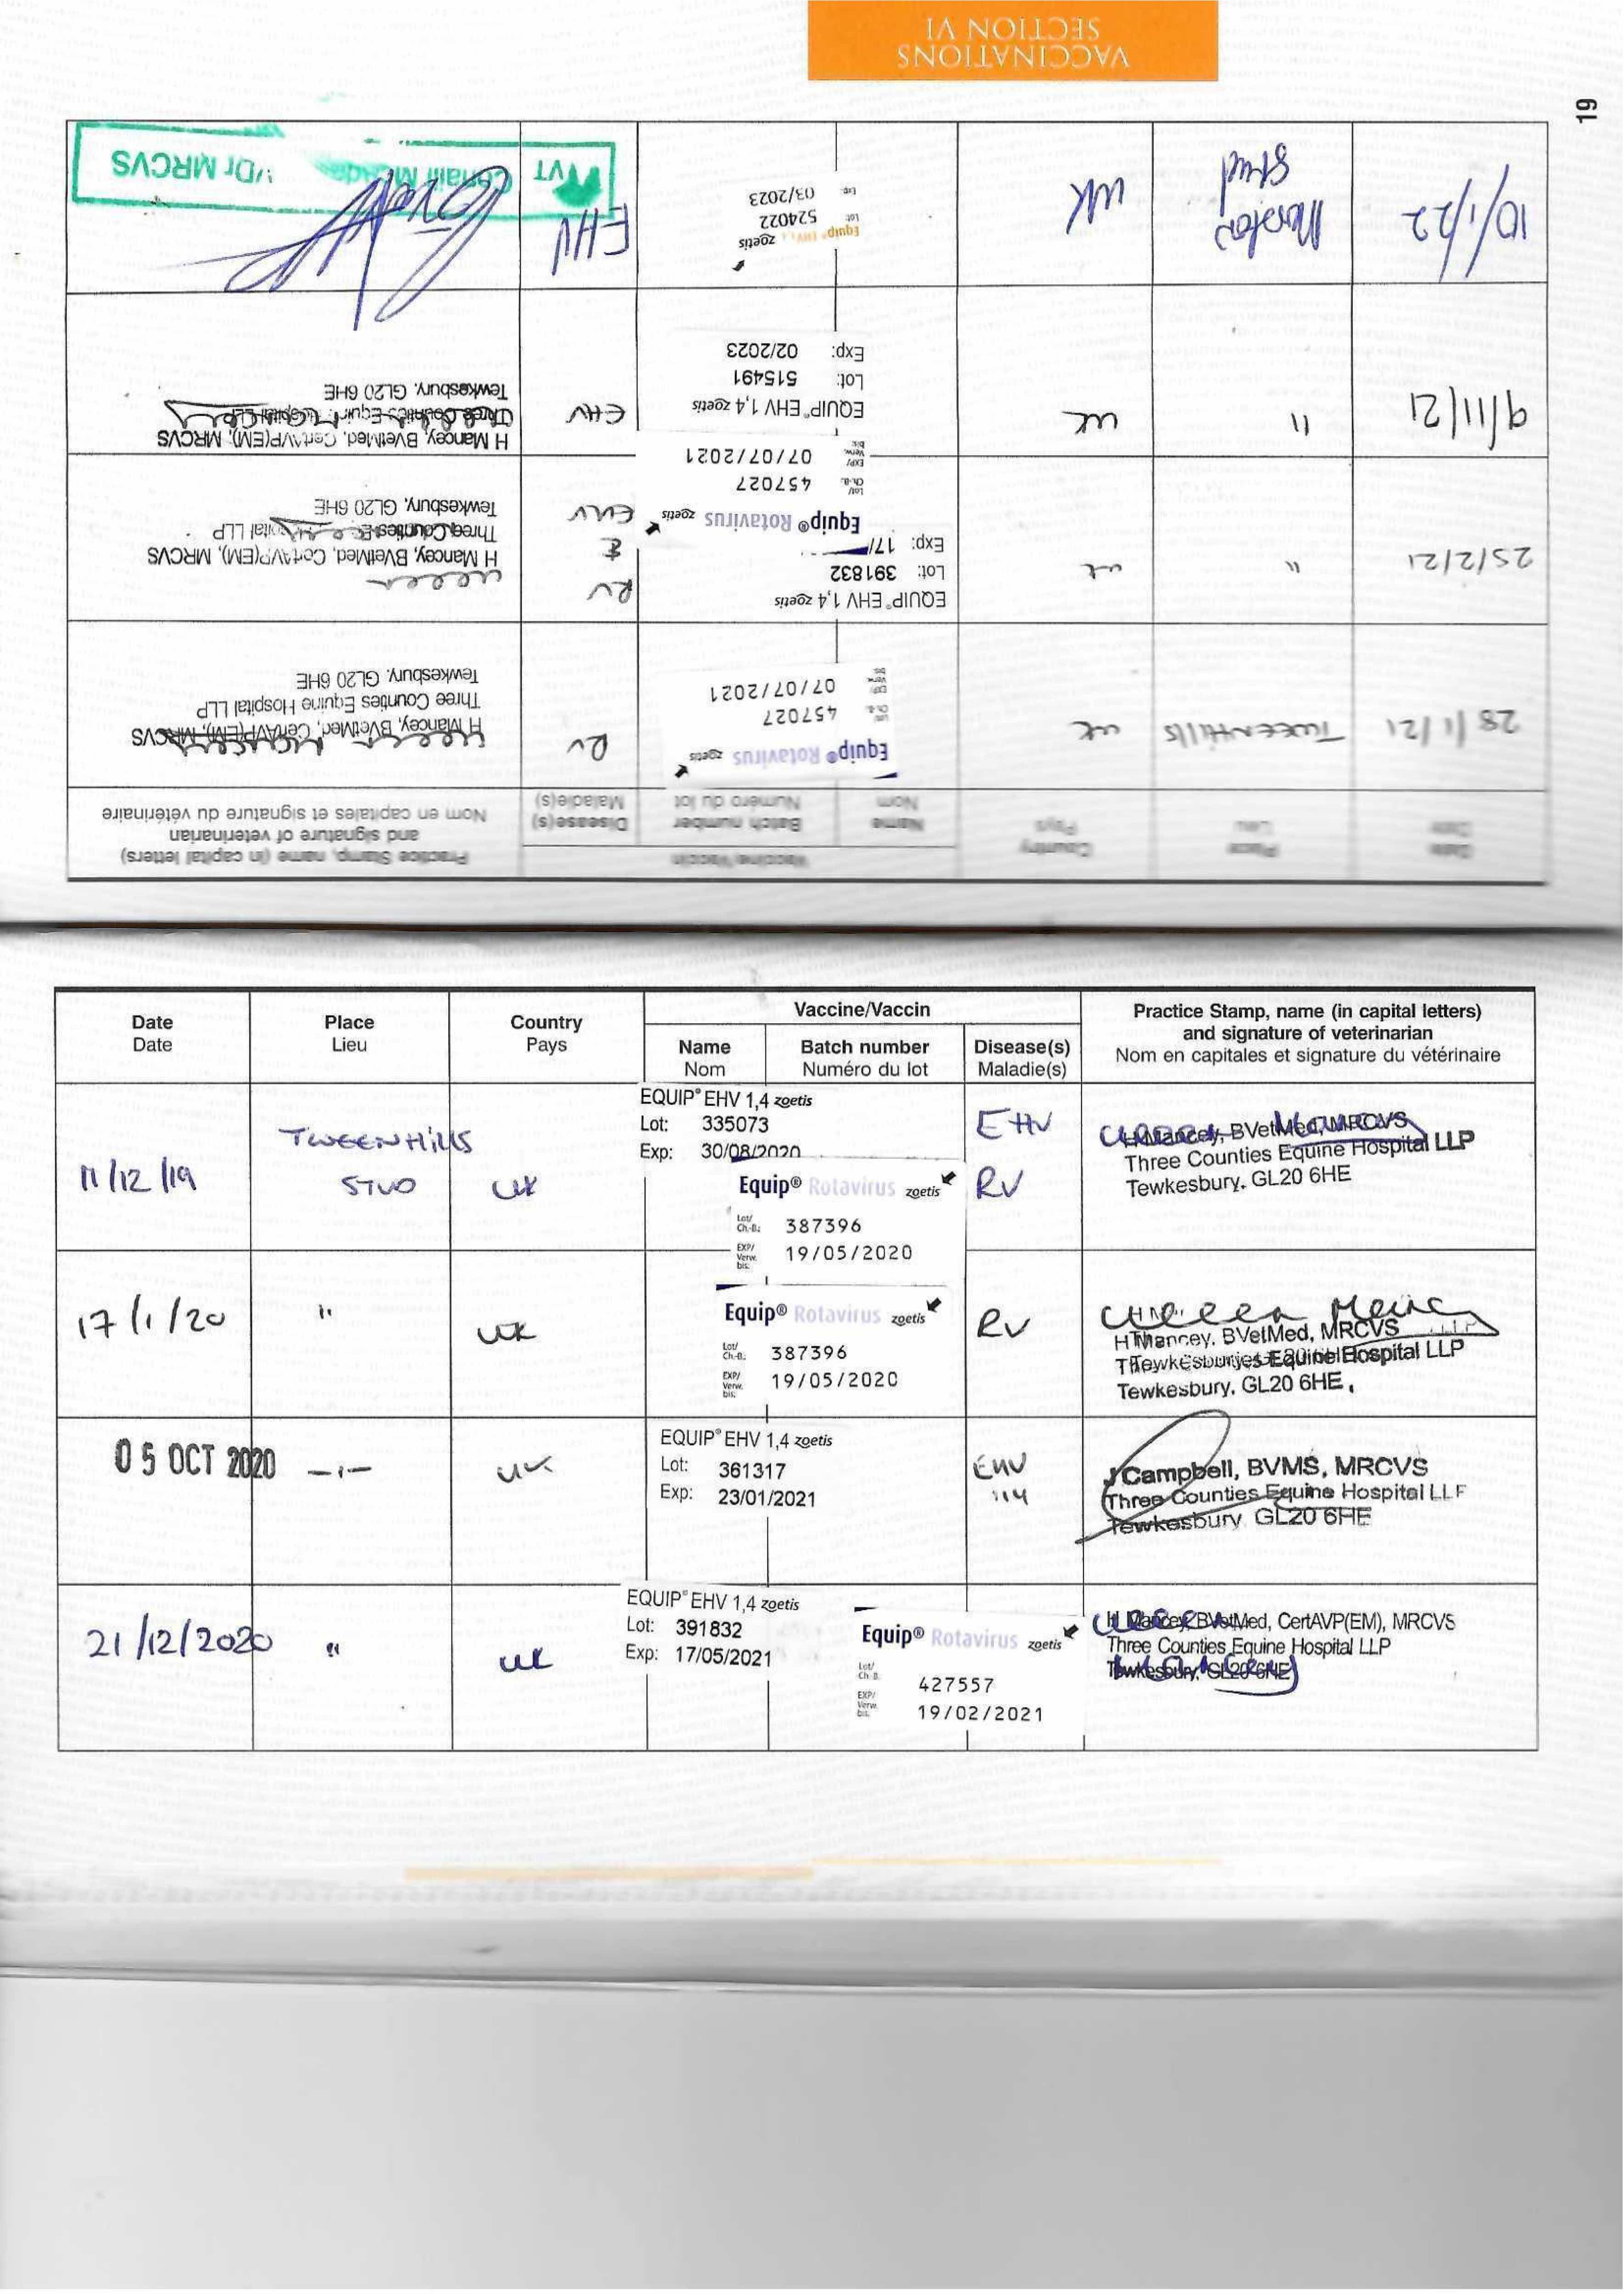 Date
Date
Place
Lieu
Country
Pays
Vaccine/Vaccin
Name
Nom
Batch number
Numéro du lot
Disease(s)
Maladie(s)
Practice Stamp, name (in capital letters)
and signature of veterinarian
Nom en capitales et signature du vétérinaire
11/12/19
TWEENHILLS
STUD
UK
EQUIP® EHV 1,4 zoetis
Lot: 335073
Exp: 30/08/2020
Equip® Rotavirus zoetis
Lot/
Ch.-B.: 387396
EXP/
Verw.
bis: 19/05/2020
EHV
RV
H Mancey, BVetMed, MRCVS
Three Counties Equine Hospital LLP
Tewkesbury. GL20 6HE
17/1/20
"
UK
Equip® Rotavirus zoetis
Lot/
Ch.-B.: 387396
EXP/
Verw.
bis: 19/05/2020
RV
H Mancey, BVetMed, MRCVS
Equine Hospital LLP
Tewkesbury, GL20 6HE
05 OCT 2020
-"-
UK
EQUIP® EHV 1,4 zoetis
Lot: 361317
Exp: 23/01/2021
EHV
1,4
J Campbell, BVMS, MRCVS
Three Counties Equine Hospital LLP
Tewkesbury GL20 6HE
21/12/2020
"
UK
EQUIP® EHV 1,4 zoetis
Lot: 391832
Exp: 17/05/2021
Equip® Rotavirus zoetis
Lot/
Ch.-B. 427557
EXP/
Verw.
bis: 19/02/2021
H Mancey, BVetMed, CertAVP(EM), MRCVS
Three Counties Equine Hospital LLP
Tewkesbury, GL20 6HE
Date
Date
Place
Lieu
Country
Pays
Vaccine/Vaccin
Name
Nom
Batch number
Numéro du lot
Disease(s)
Maladie(s)
Practice Stamp, name (in capital letters)
and signature of veterinarian
Nom en capitales et signature du vétérinaire
28/1/21
TWEENHILLS
UK
Equip® Rotavirus zoetis
Lot/
Ch.-B. 457027
EXP/
Verw.
bis: 07/07/2021
RV
H Mancey, BVetMed, CertAVP(EM), MRCVS
Three Counties Equine Hospital LLP
Tewkesbury, GL20 6HE
25/2/21
"
UK
EQUIP® EHV 1,4 zoetis
Lot: 391832
Exp: 17/
Equip® Rotavirus zoetis
Lot/
Ch.-B. 457027
EXP/
Verw.
bis: 07/07/2021
RV
&
EHV
H Mancey, BVetMed, CertAVP(EM), MRCVS
Three Counties
Tewkesbury, GL20 6HE
9/11/21
"
UK
EQUIP® EHV 1,4 zoetis
Lot: 515491
Exp: 02/2023
EHV
H Mancey, BVetMed, CertAVP(EM), MRCVS
Three Counties Equine Hospital LLP
Tewkesbury, GL20 6HE
10/1/22
Stud
UK
Equip® EHV 1,4 zoetis
Lot 524022
Exp 03/2023
EHV
MRCVS
19
VACCINATIONS
SECTION VI